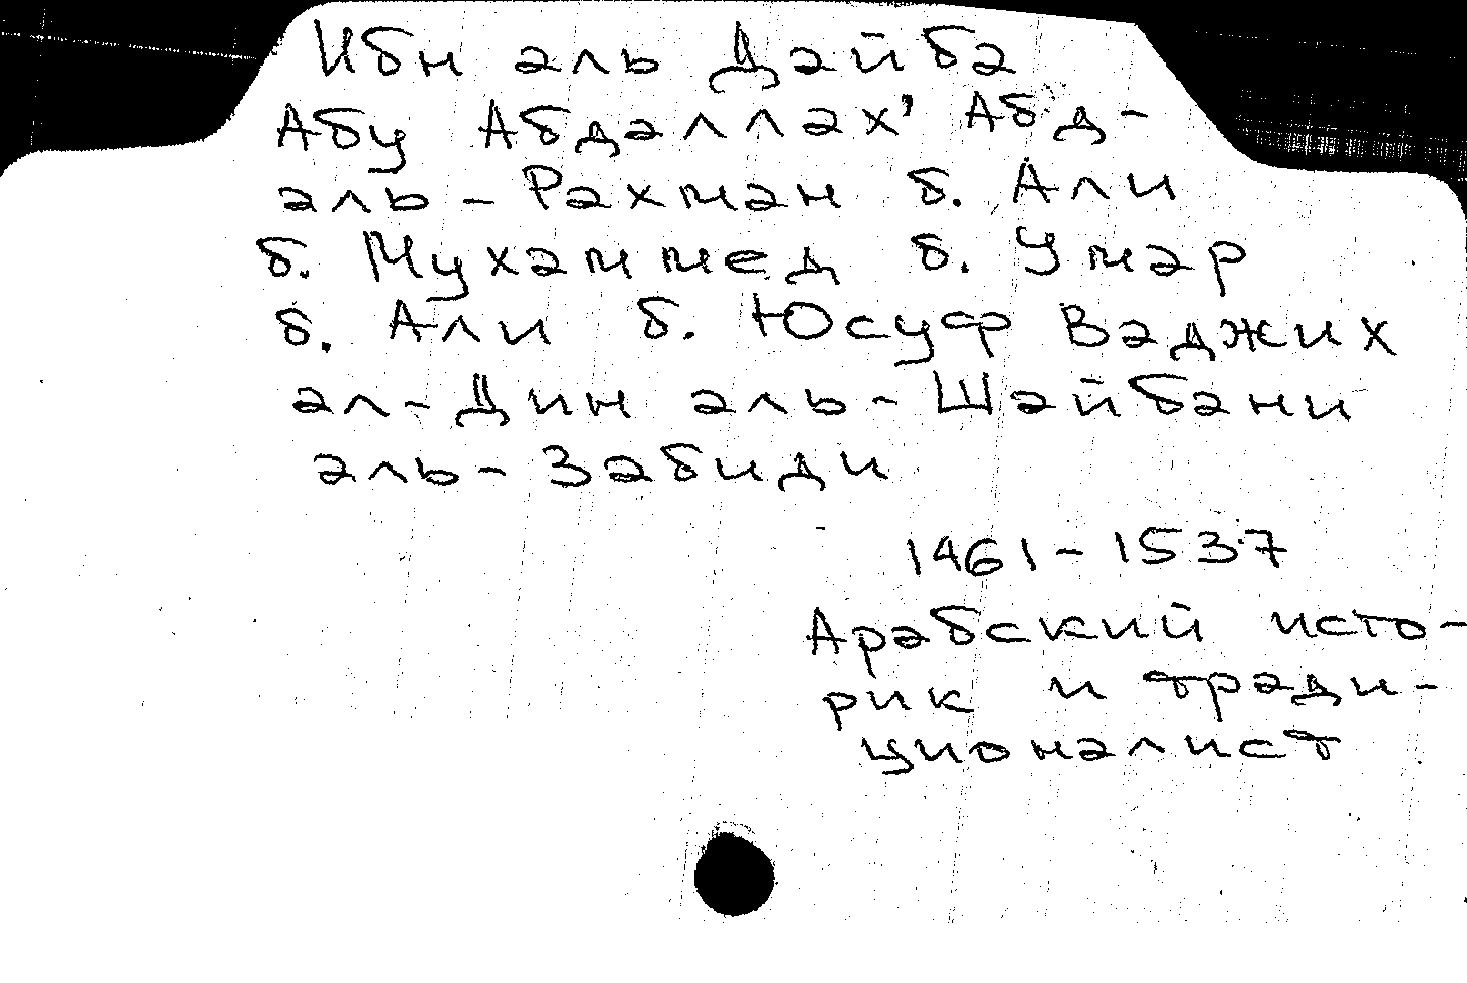 Ибн аль Дайба
Абу Абдаллах' Абд-
аль-Рахман б. Али
б. Мухаммед б. Умар
б. Али б. Юсуф Ваджих
ал-Дин аль-Шайбани
аль-Забиди
1461-1537
Арабский исто-
рик и тради-
ционалист